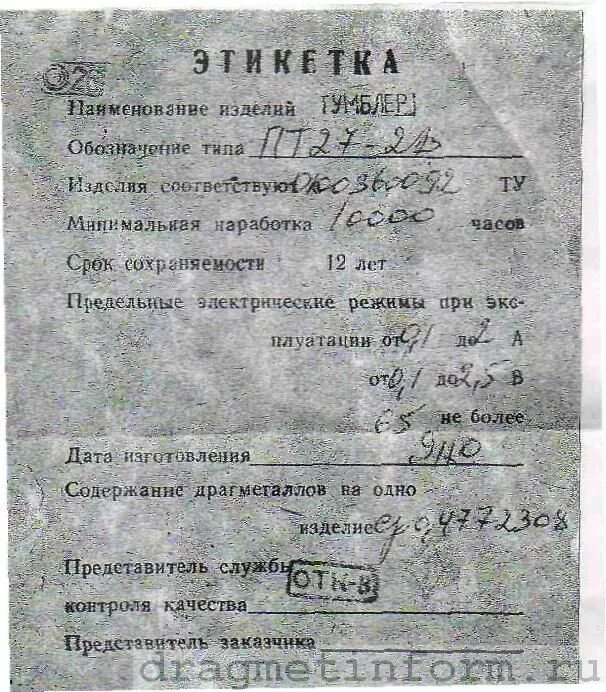 ЭТИКЕТКА
Наименование изделий ТУМБЛЕР
Обозначение типа ПТ27-2В
Изделия соответствуют ОЮ0360092 ТУ
Минимальная наработка 10000 часов
Срок сохраняемости 12 лет
Предельные электрические режимы при экс-
плуатации от 0,1 до 2 А
от 0,1 до 2,5 В
65 не более
Дата изготовления
Содержание драгметаллов на одно
изделие ср 0,4772308
Представитель службы
ОТК-8
контроля качества
Представитель заказчика
dragmetinform.ru